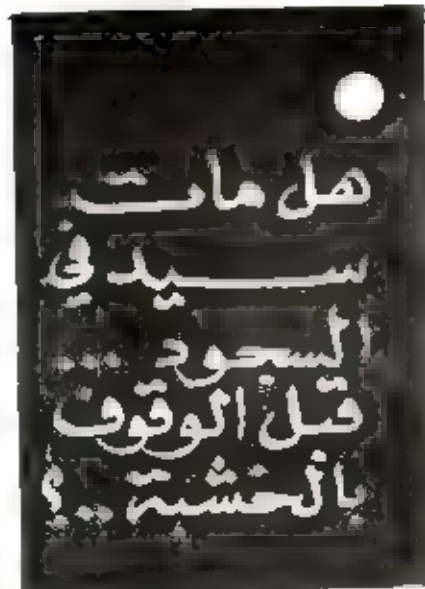 هل مات
سيد في
السجود ...
قبل الوقوف
بالخشبة .. ؟